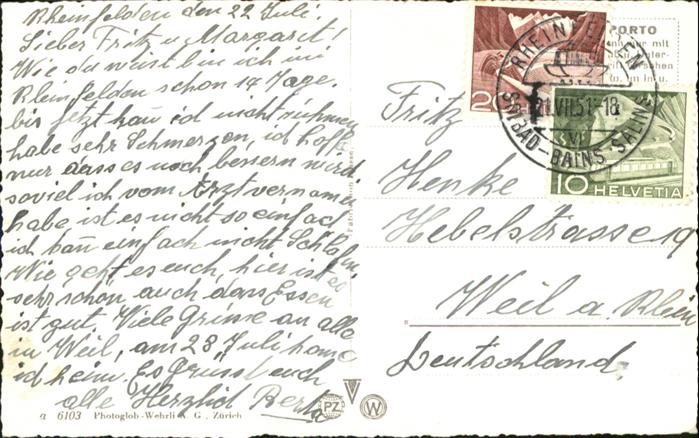 Rheinfelden den 22 Juli.
Lieber Fritz u Margarit!
Wie du weist bin ich in
Rheinfelden schon 14 Tage.
bis jetzt kan ich nicht rühmen
habe sehr Schmerzen, ich hoffe
nur dass es noch bessern wird
soviel ich vom Arzt vernamen
habe ist es nicht so einfach
ich kan einfach nicht Schlafen
Wie geht es euch, hier ist es
sehr schön auch dass Essen
ist gut. Viele Grüsse an alle
in Weil, am 28 Juli kome
ich heim. Es Grüsst euch
alle Herzlich Berta
a 6103 Photoglob-Wehrli A. G., Zürich
PZ
W
20
RHEINFELDEN
21.VII.51-18
SOLBAD-BAINS SALINS
10 HELVETIA
PORTO
nur mit
Fritz
Henke
Hebelstrasse 19
Weil a. Rhein
Deutschland.